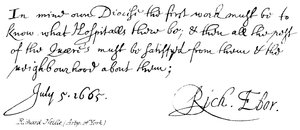 In mine own Diocese the first work must be to
know what Hospitalls there be, & then all the rest
of the Quæries must be satisfyed from them & the
neighbourhood about them;
July 5. 1665.
Rich. Ebor.
Richard Neile (Arbp. of York)